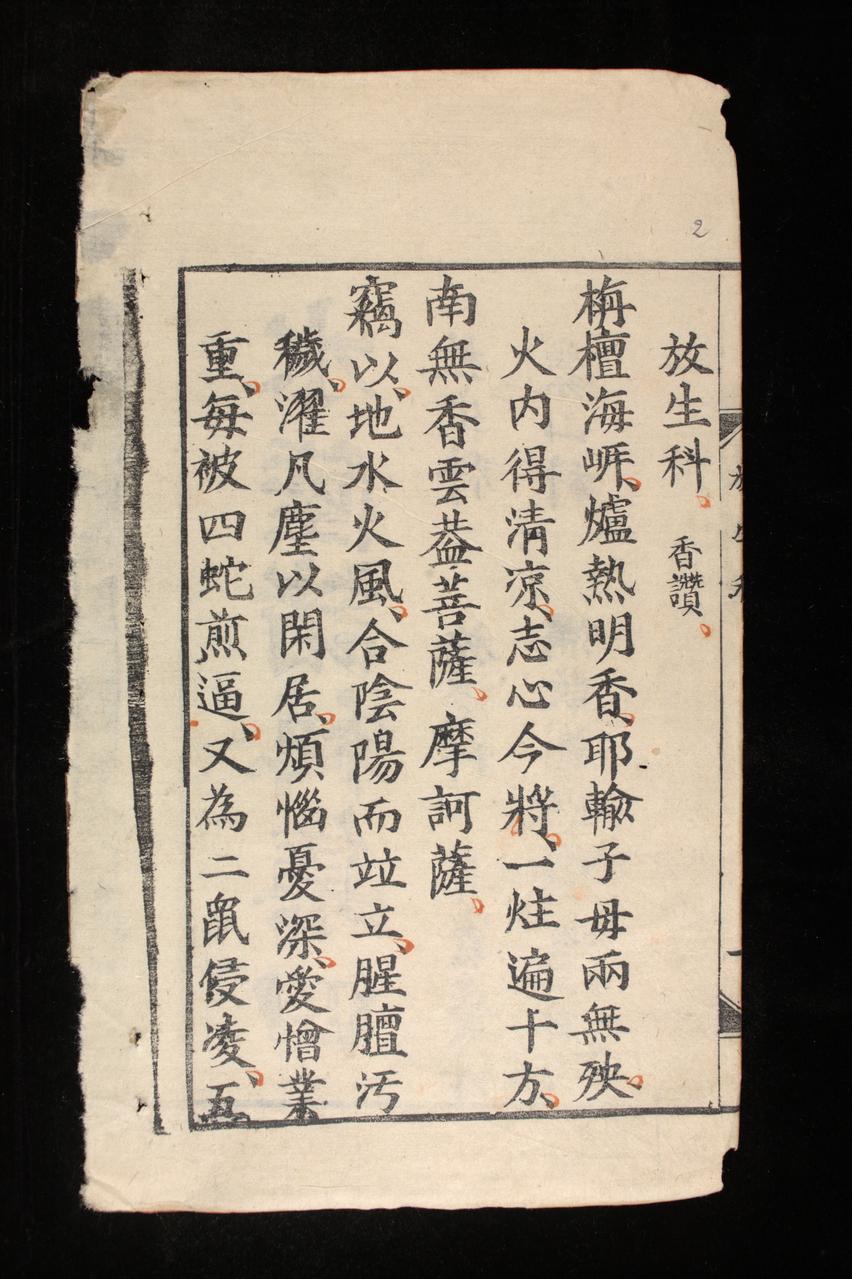 2
放生科 香讚
栴檀海岍爐熱明香耶輸子母兩無殃
火内得清凉志心今將一炷遍十方
南無香雲葢菩薩摩訶薩
竊以地水火風合陰陽而竝立腥膻汚
穢濯凡塵以閑居煩惱憂深愛憎業
重每被四蛇煎逼又為二鼠侵凌五